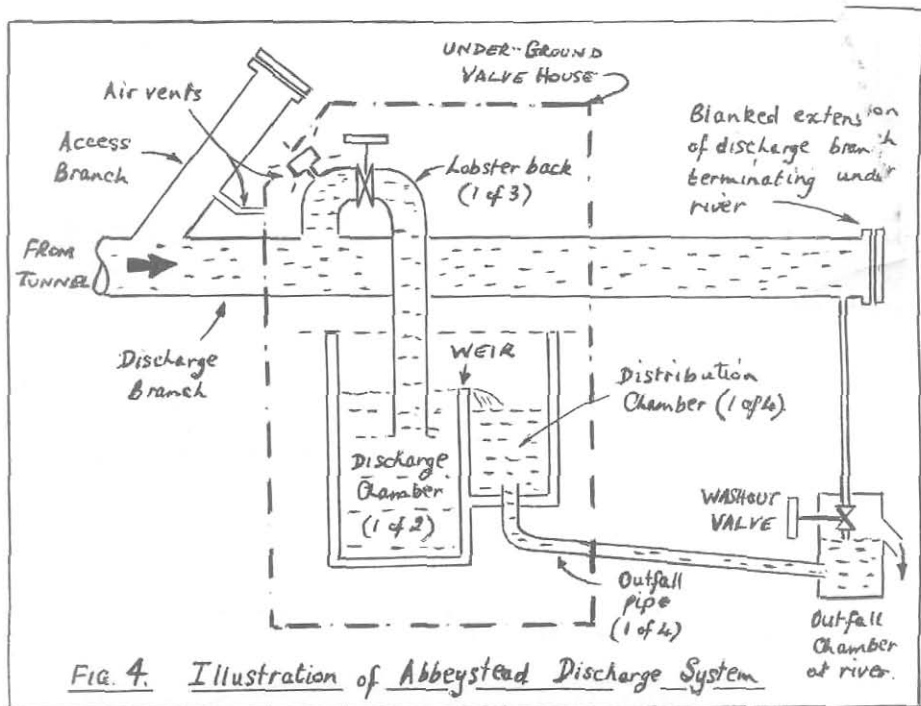 UNDER-GROUND
VALVE HOUSE
Air vents
Access
Branch
Lobster back
(1 of 3)
Blanked extension
of discharge branch
terminating under
river
FROM
TUNNEL
Discharge
Branch
WEIR
Distribution
Chamber (1 of 4).
Discharge
Chamber
(1 of 2)
WASHOUT
VALVE
Outfall
pipe
(1 of 4)
Outfall
Chamber
at river.
FIG. 4. Illustration of Abbeystead Discharge System